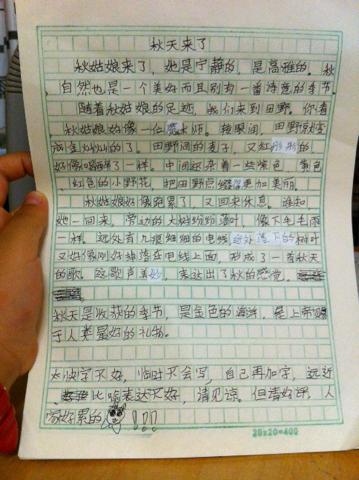 秋天来了
秋姑娘来了，她是宁静的，是高雅的。秋
自然也是一个美好而且别有一番诗意的季节。
随着秋姑娘的足迹，我们来到田野。你看
秋姑娘好像一位魔术师。转眼间，田野就变
的了。田野间的麦子，又红彤彤的
好像喝醉了一样。中间还杂着一些紫色，黄色
红色的小野花，把田野点缀得更加美丽。
秋姑娘好像跑累了，又回来休息。谁知
她一回来，旁边的大树纷纷落叶，像下毛毛雨
一样。远处有几根细细的电线，落下的树叶
又好像刚好掉落在电线上面，形成了一首秋天
的歌。这歌声美妙，表达出了秋的感觉。
秋天是收获的季节，是金色的海洋，是上帝赐
于人类最好的礼物。
快字不好，临时不会写，自己再加字，远近
比喻表达不好，请见谅。但请好评，人
家好累的 !!!
20×20=400